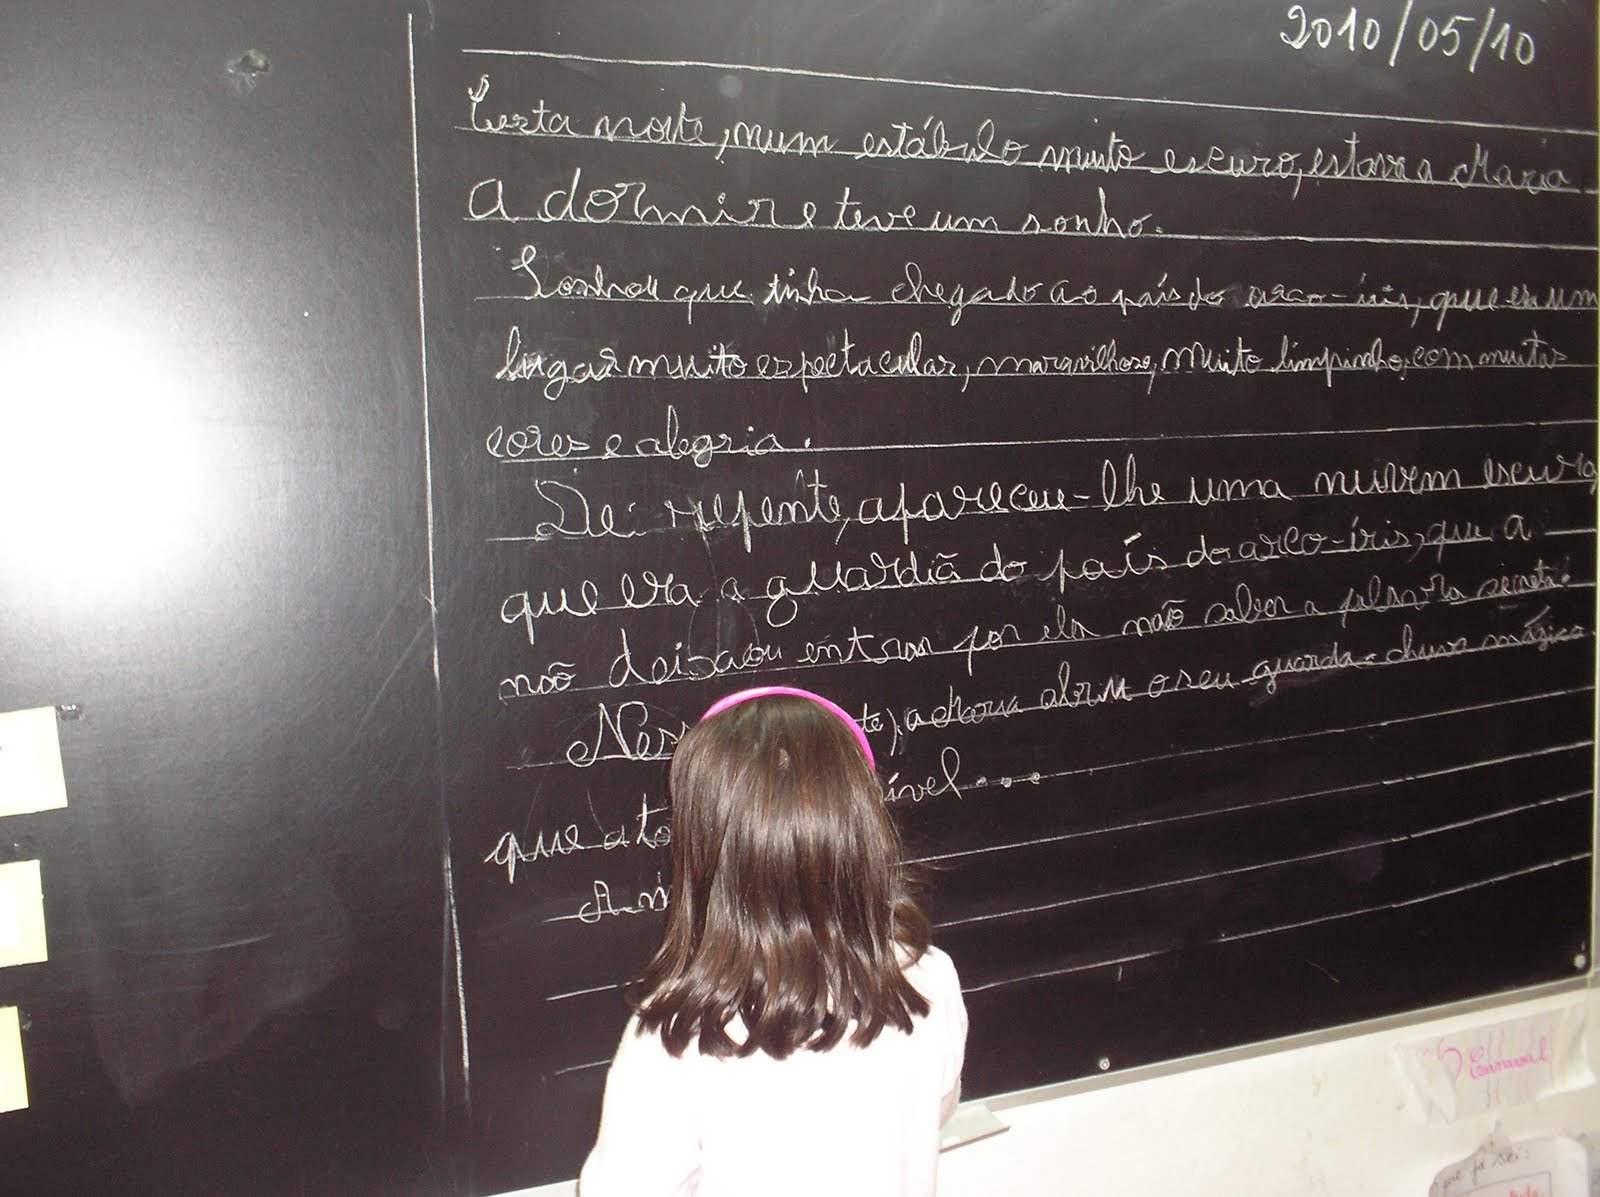 2010/05/10
Certa noite, num estábulo muito escuro, estava a Maria
a dormir e teve um sonho.
Sonhou que tinha chegado ao país do arco-íris, que era um
lugar muito espectacular, maravilhoso, muito limpinho, com muitas
cores e alegria.
De repente, apareceu-lhe uma nuvem escura,
que era a guardiã do país do arco-íris, que a
não deixou entrar por ela não saber a palavra secreta.
Nes te), a Maria abriu o seu guarda-chuva mágico
que a to ível...
A m
Carnaval
que já sei: